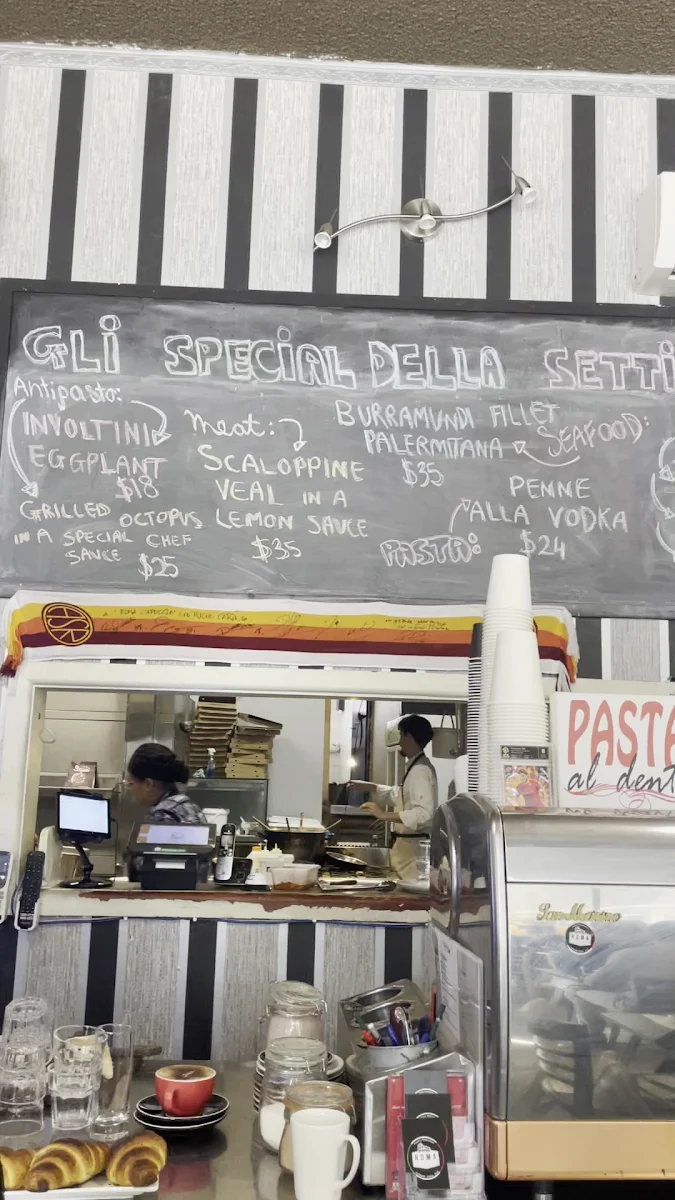 GLI SPECIAL DELLA SETTI
Antipasto:
INVOLTINI
EGGPLANT
$18
GRILLED OCTOPUS
IN A SPECIAL CHEF
SAUCE $25
Meat:
SCALOPPINE
VEAL IN A
LEMON SAUCE
$35
BURRAMUNDI FILLET
PALERMITANA
SEAFOOD:
$35
PENNE
ALLA VODKA
PASTA:
$24
PASTA
al dent
San Marino
ROMA
ROMA